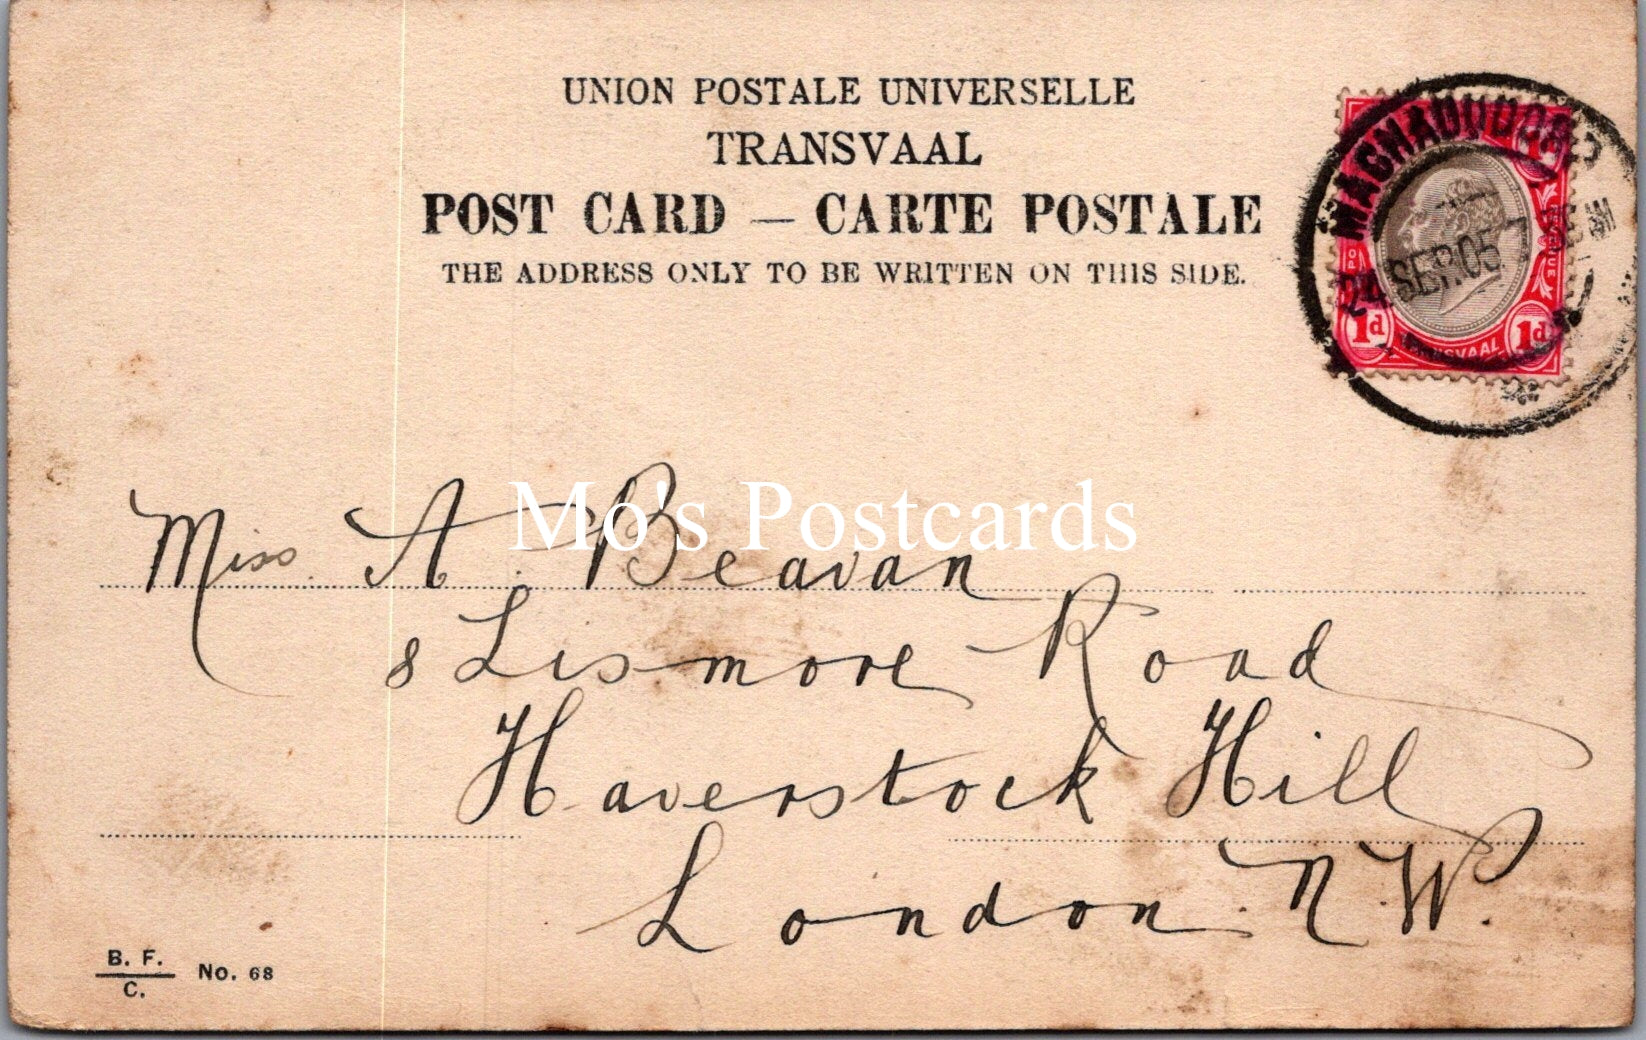 UNION POSTALE UNIVERSELLE
TRANSVAAL
POST CARD — CARTE POSTALE
THE ADDRESS ONLY TO BE WRITTEN ON THIS SIDE.
24 SEP. 05
1d 1d
TRANSVAAL
Mo's Postcards
Miss A. Beavan
8 Lismore Road
Haverstock Hill
London. N.W.
B. F.
C.
No. 68